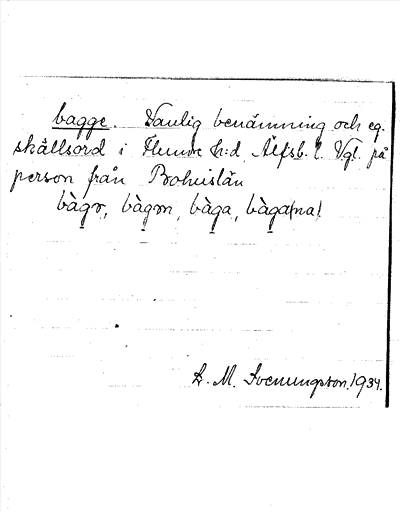 bagge. Vanlig benämning och eg.
skällsord i Flundre h:d, Älfsb. l. Vgl. på
person från Bohuslän
bàgə, bàgən, bàga, bàga(na)
S. M. Svenungsson. 1934.